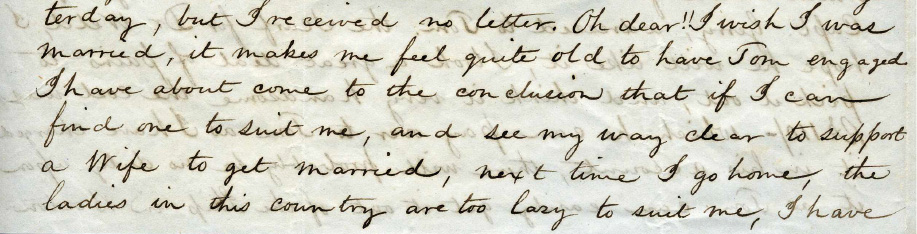 terday, but I received no letter. Oh dear!! I wish I was
married, it makes me feel quite old to have Tom engaged
I have about come to the conclusion that if I can
find one to suit me, and see my way clear to support
a Wife to get married, next time I go home, the
ladies in this country are too lazy to suit me, I have